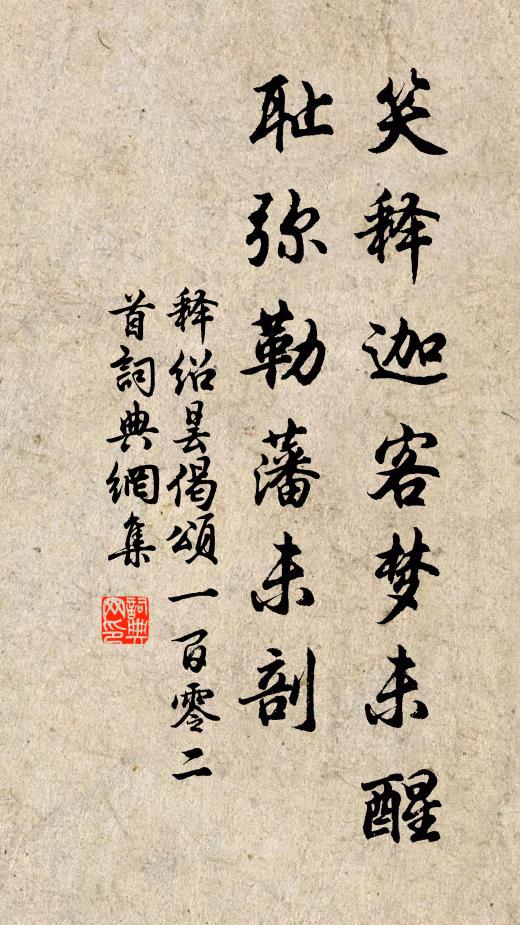 笑释迦客梦未醒
耻弥勒藩未剖
释绍昙偈颂一百零二
首詞典網集
詞典网印